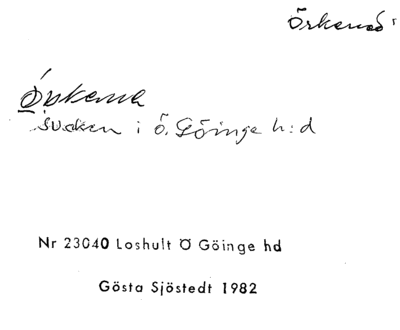 Örkened
Örkena
socken i Ö. Göinge h:d
Nr 23040 Loshult Ö Göinge hd
Gösta Sjöstedt 1982